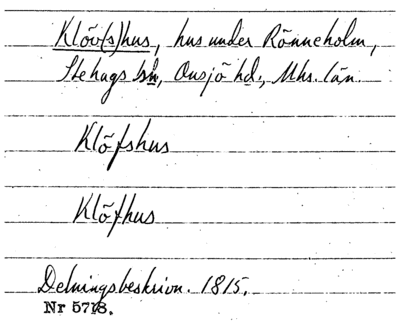 Klöv(s)hus, hus under Rönneholm,
Stehags sn, Onsjö hd., Mhs. län.
Klöfshus
Klöfhus
Delningsbeskrivn. 1815.
Nr 5718.